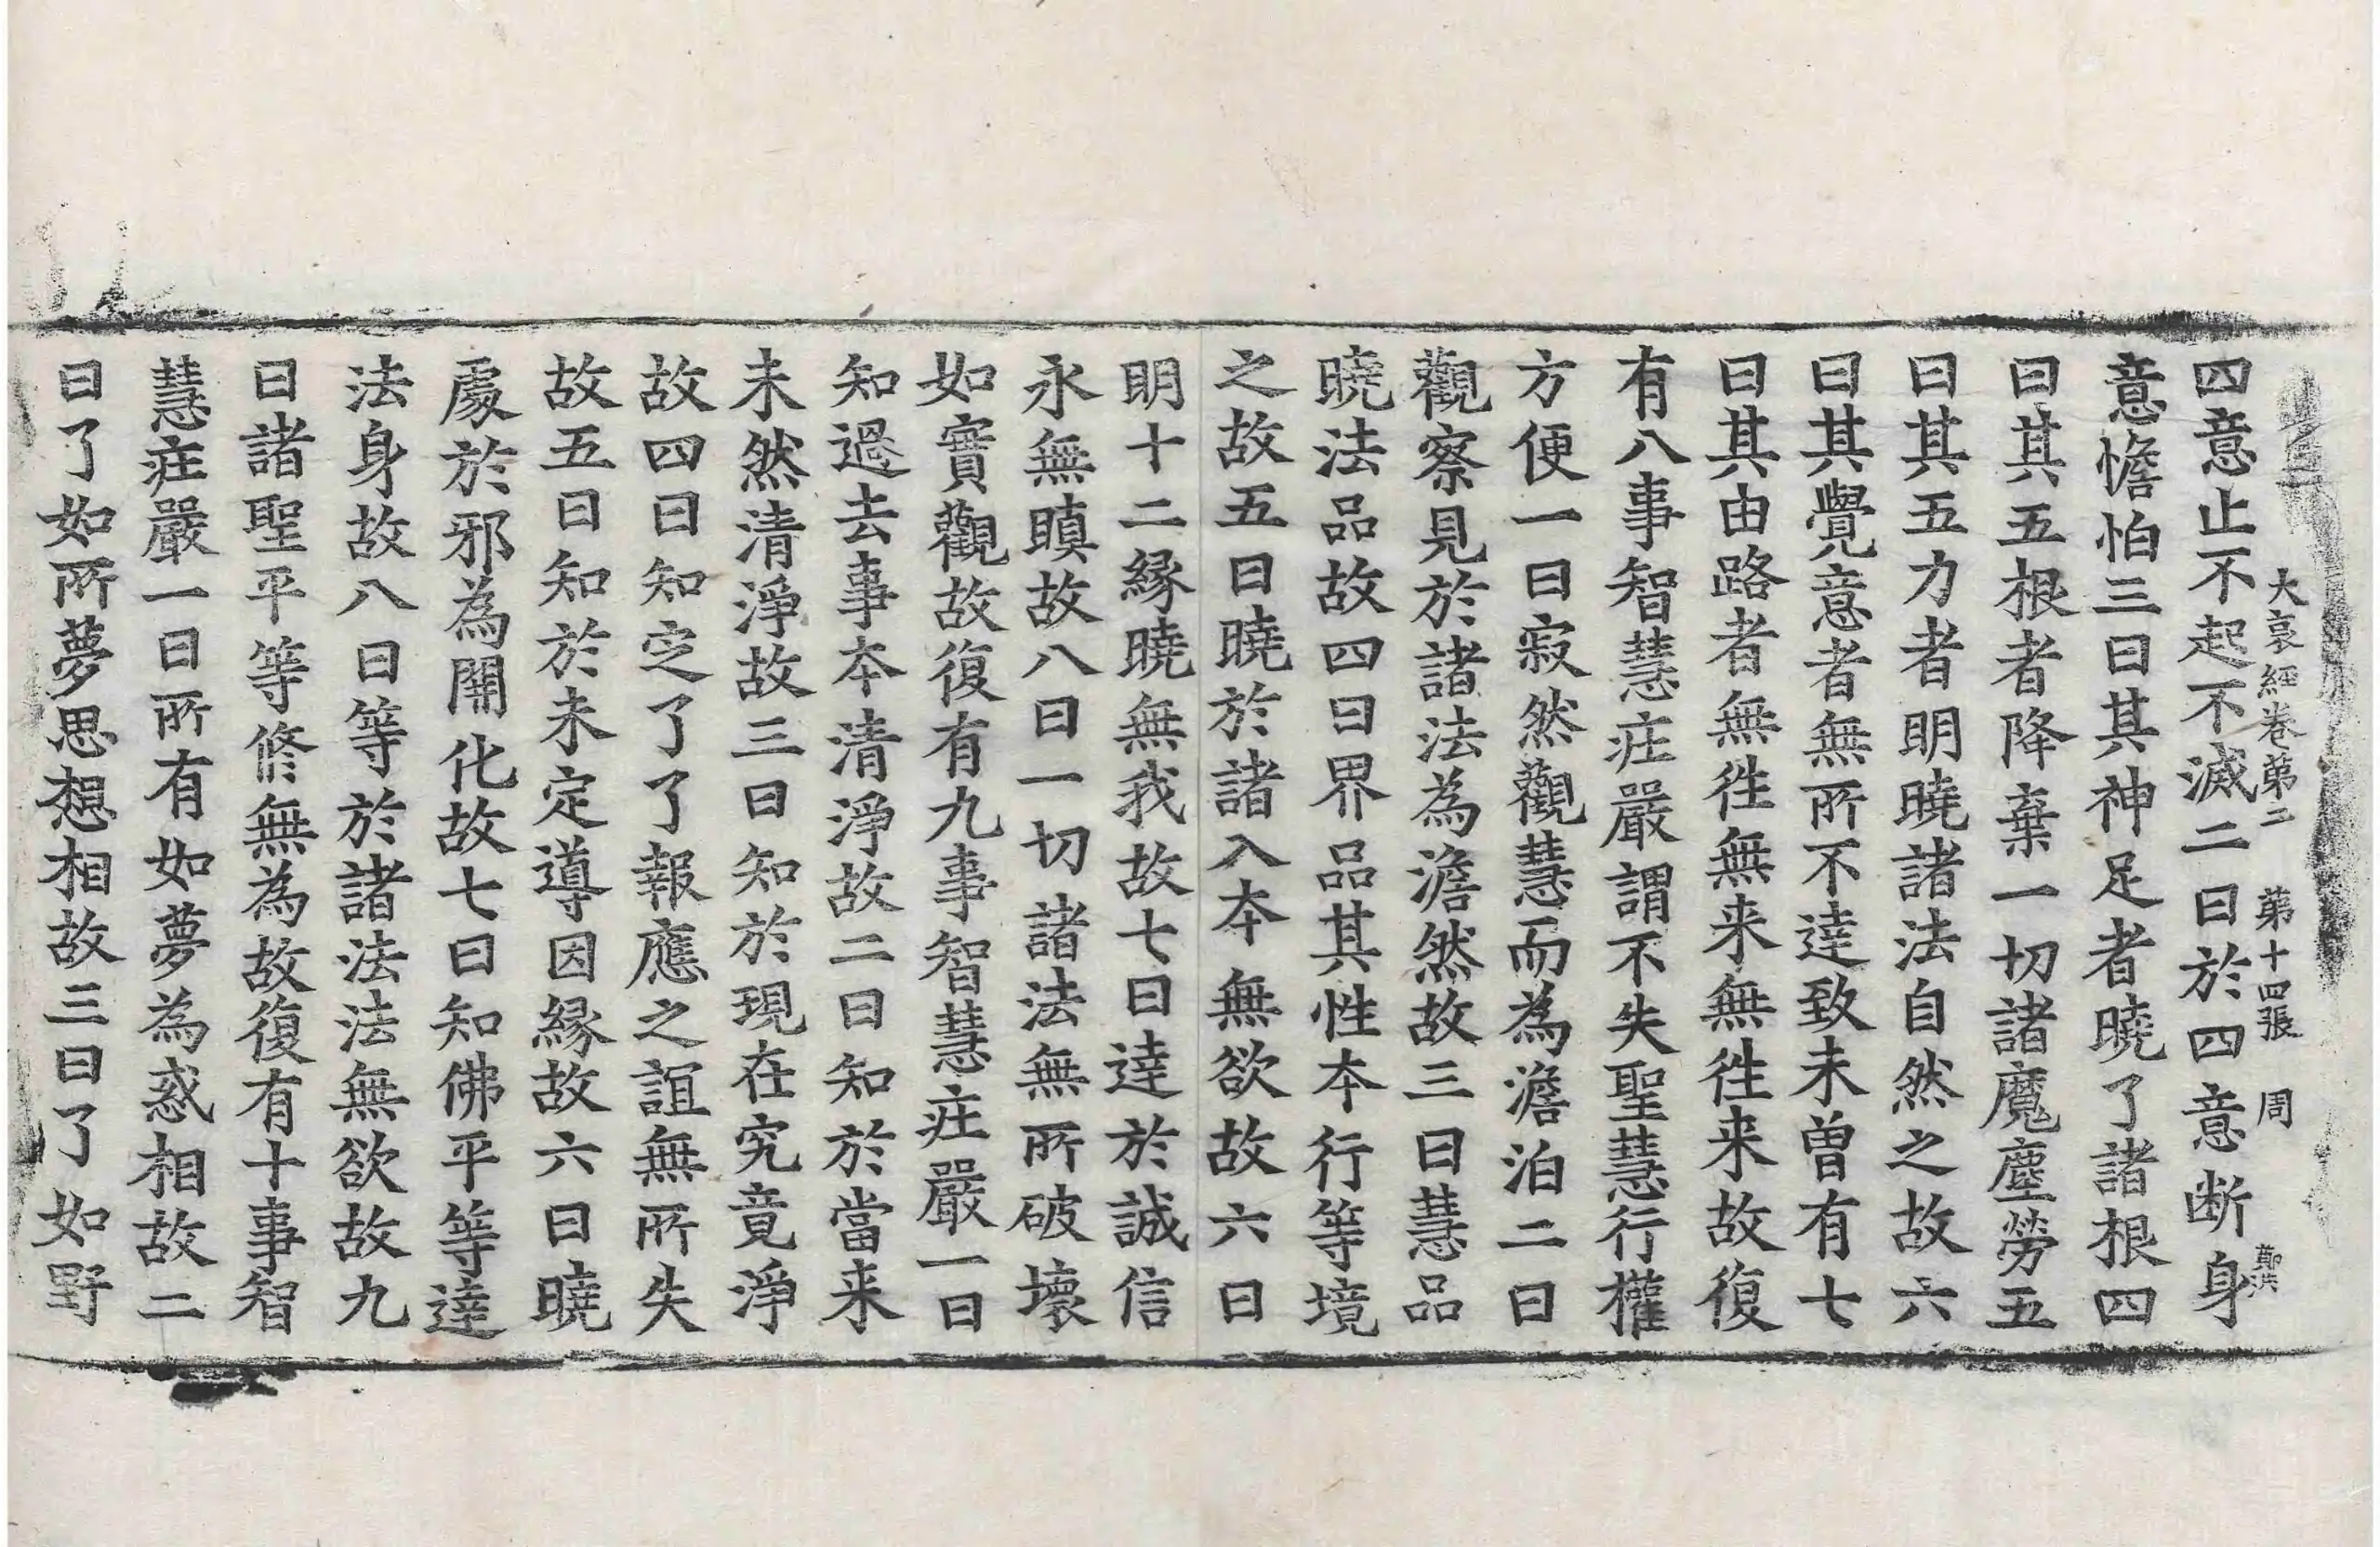 大哀經卷第二　第十四張　周
四意止不起不滅二曰於四意断身
意憺怕三曰其神足者曉了諸根四
曰其五根者降棄一切諸魔塵勞五
曰其五力者明曉諸法自然之故六
曰其覺意者無所不達致未曾有七
曰其由路者無徃無来無徃来故復
有八事智慧莊嚴謂不失聖慧行權
方便一曰寂然觀慧而為澹泊二曰
觀察見於諸法為澹然故三曰慧品
曉法品故四曰界品其性本行等境
之故五曰曉於諸入本無欲故六曰
明十二縁曉無我故七曰達於誠信
永無瞋故八曰一切諸法無所破壞
如實觀故復有九事智慧莊嚴一曰
知過去事本清淨故二曰知於當来
未然清淨故三曰知於現在究竟淨
故四曰知定了了報應之誼無所失
故五曰知於未定導因縁故六曰曉
處於邪為開化故七曰知佛平等達
法身故八曰等於諸法法無欲故九
曰諸聖平等修無為故復有十事智
慧莊嚴一曰所有如夢為惑相故二
曰了如所夢思想相故三曰了如野